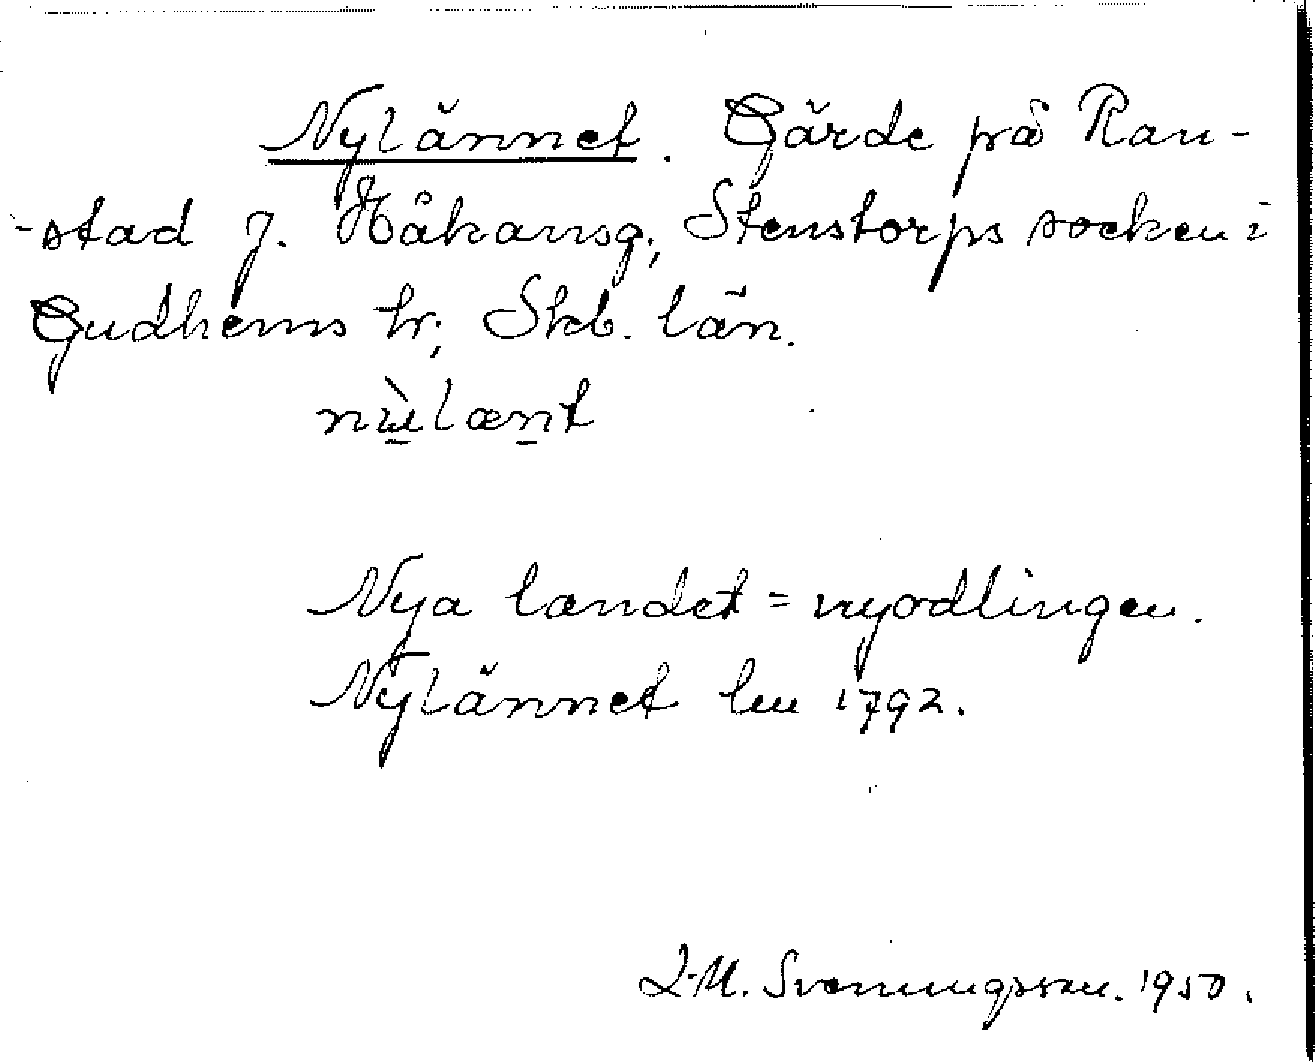 Nylännet. Gärde på Ran-
-stad J. Håkansg., Stenstorps socken i
Gudhems hr., Skb. län.
nù̱læṉt
Nya landet = nyodlingen.
Nylännet lm 1792.
L-M. Svenungsson. 1950.